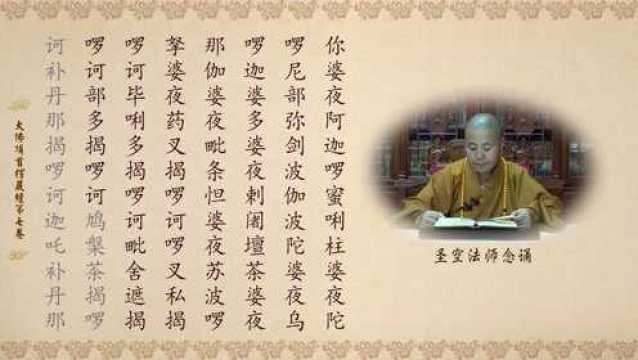 你婆夜阿迦啰蜜唎柱婆夜陀
啰尼部弥剑波伽波陀婆夜乌
啰迦婆多婆夜剌闍壇茶婆夜
那伽婆夜毗条怛婆夜苏波啰
拏婆夜药叉揭啰诃啰叉私揭
啰诃毕唎多揭啰诃毗舍遮揭
啰诃部多揭啰诃鸠槃茶揭啰
诃补丹那揭啰诃迦吒补丹那
大佛頂首楞嚴經第七卷
圣空法师念诵